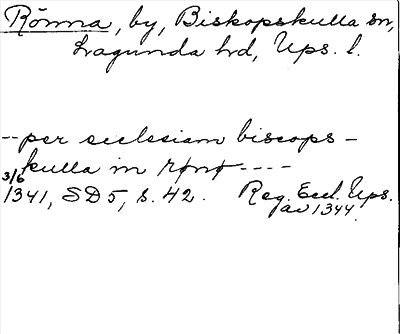 Rönna, by, Biskopskulla sn,
Lagunda hd, Ups. l.
-- per ecclesiam biscops-
kulla in rønø ----
3/6
1341, SD 5, s. 42. Reg. Eccl. Ups.
av 1344.